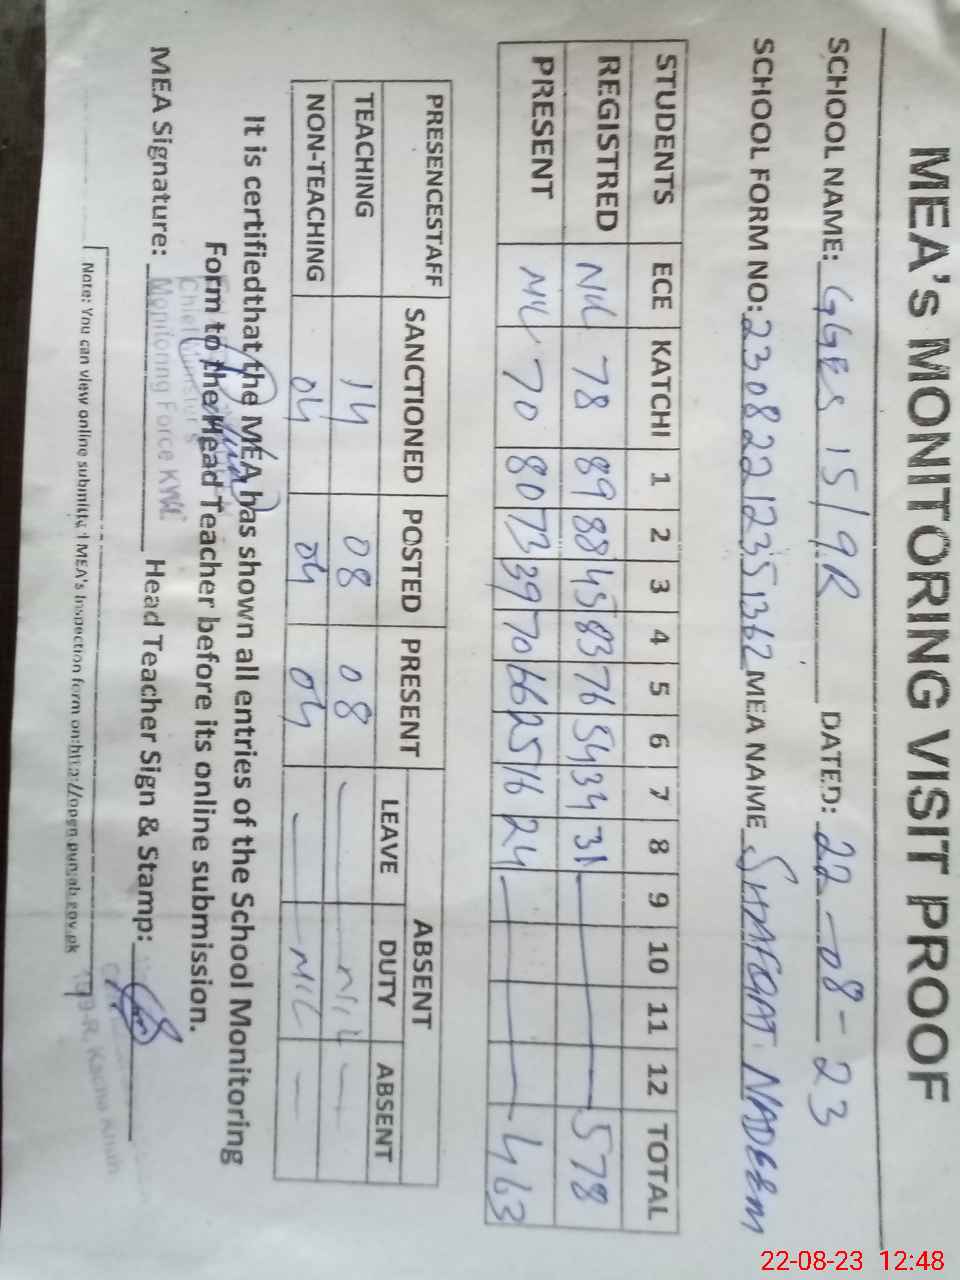 MEA's MONITORING VISIT PROOF
SCHOOL NAME: GGES 15/9R DATED: 22-08-23
SCHOOL FORM NO: 23082212351362 MEA NAME SHAFQAT NADEEM
STUDENTS ECE KATCHI 1 2 3 4 5 6 7 8 9 10 11 12 TOTAL
REGISTRED NIL 78 89 88 45 83 76 54 34 31 578
PRESENT NIL 70 80 73 39 70 66 25 16 24 463
PRESENCESTAFF SANCTIONED POSTED PRESENT ABSENT
LEAVE DUTY ABSENT
TEACHING 14 08 08 — NIL —
NON-TEACHING 04 04 04 — NIL —
It is certifiedthat the MEA has shown all entries of the School Monitoring
Form to the Head Teacher before its online submission.
Chief Minister's
Monitoring Force KWL
MEA Signature: Head Teacher Sign & Stamp:
15/9-R, Kacha Khuh
Note: You can view online submitted MEA's Inspection form on:http://open.punjab.gov.pk
22-08-23 12:48